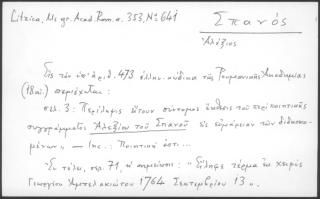 Litzica, Ms gr. Acad. Rom. σ. 353, Nº 641
Σπανός
Ἀλέξιος
Εἰς τὸν ὑπ' ἀρ. 473 ἑλλην. κώδικα τῆς Ρουμανικῆς Ἀκαδημίας
(18 αἰ.) περιέχεται:
σελ. 3: Περίληψις εἴτουν σύντομος ἔκθεσις τοῦ περὶ ποιητικῆς
συγγράμματος Ἀλεξίου τοῦ Σπανοῦ εἰς εὐμάρειαν τῶν διδασκο-
μένων» — Inc.: Ποιητική ἐστι...
Ἐν τέλει, σελ. 71, σημείωσις: "Εἴληφε τέρμα ἐκ χειρὸς
Γεωργίου Ἀμπελακιώτου 1764 Σεπτεμβρίου 13".